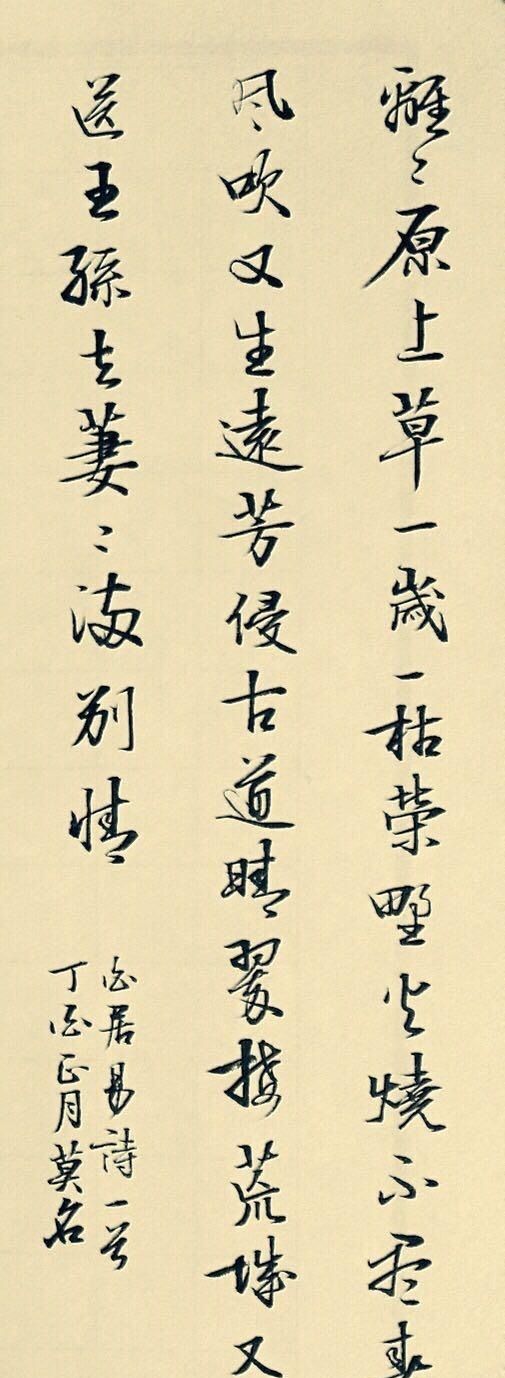 離〻原上草一歲一枯榮野火燒不盡春
風吹又生遠芳侵古道晴翠接荒城又
送王孫去萋〻滿別情
白居易詩一首
丁酉正月莫名